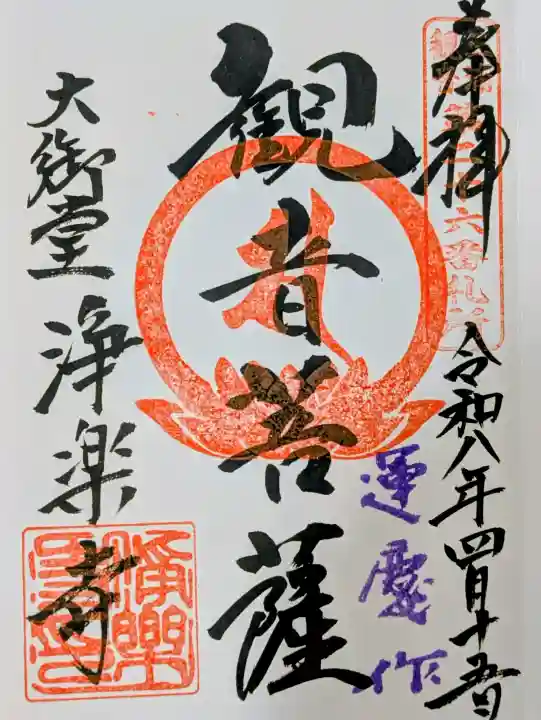 奉拝
六番札所
令和八年四月十五日
運慶作
観音菩薩
大御堂
浄楽寺